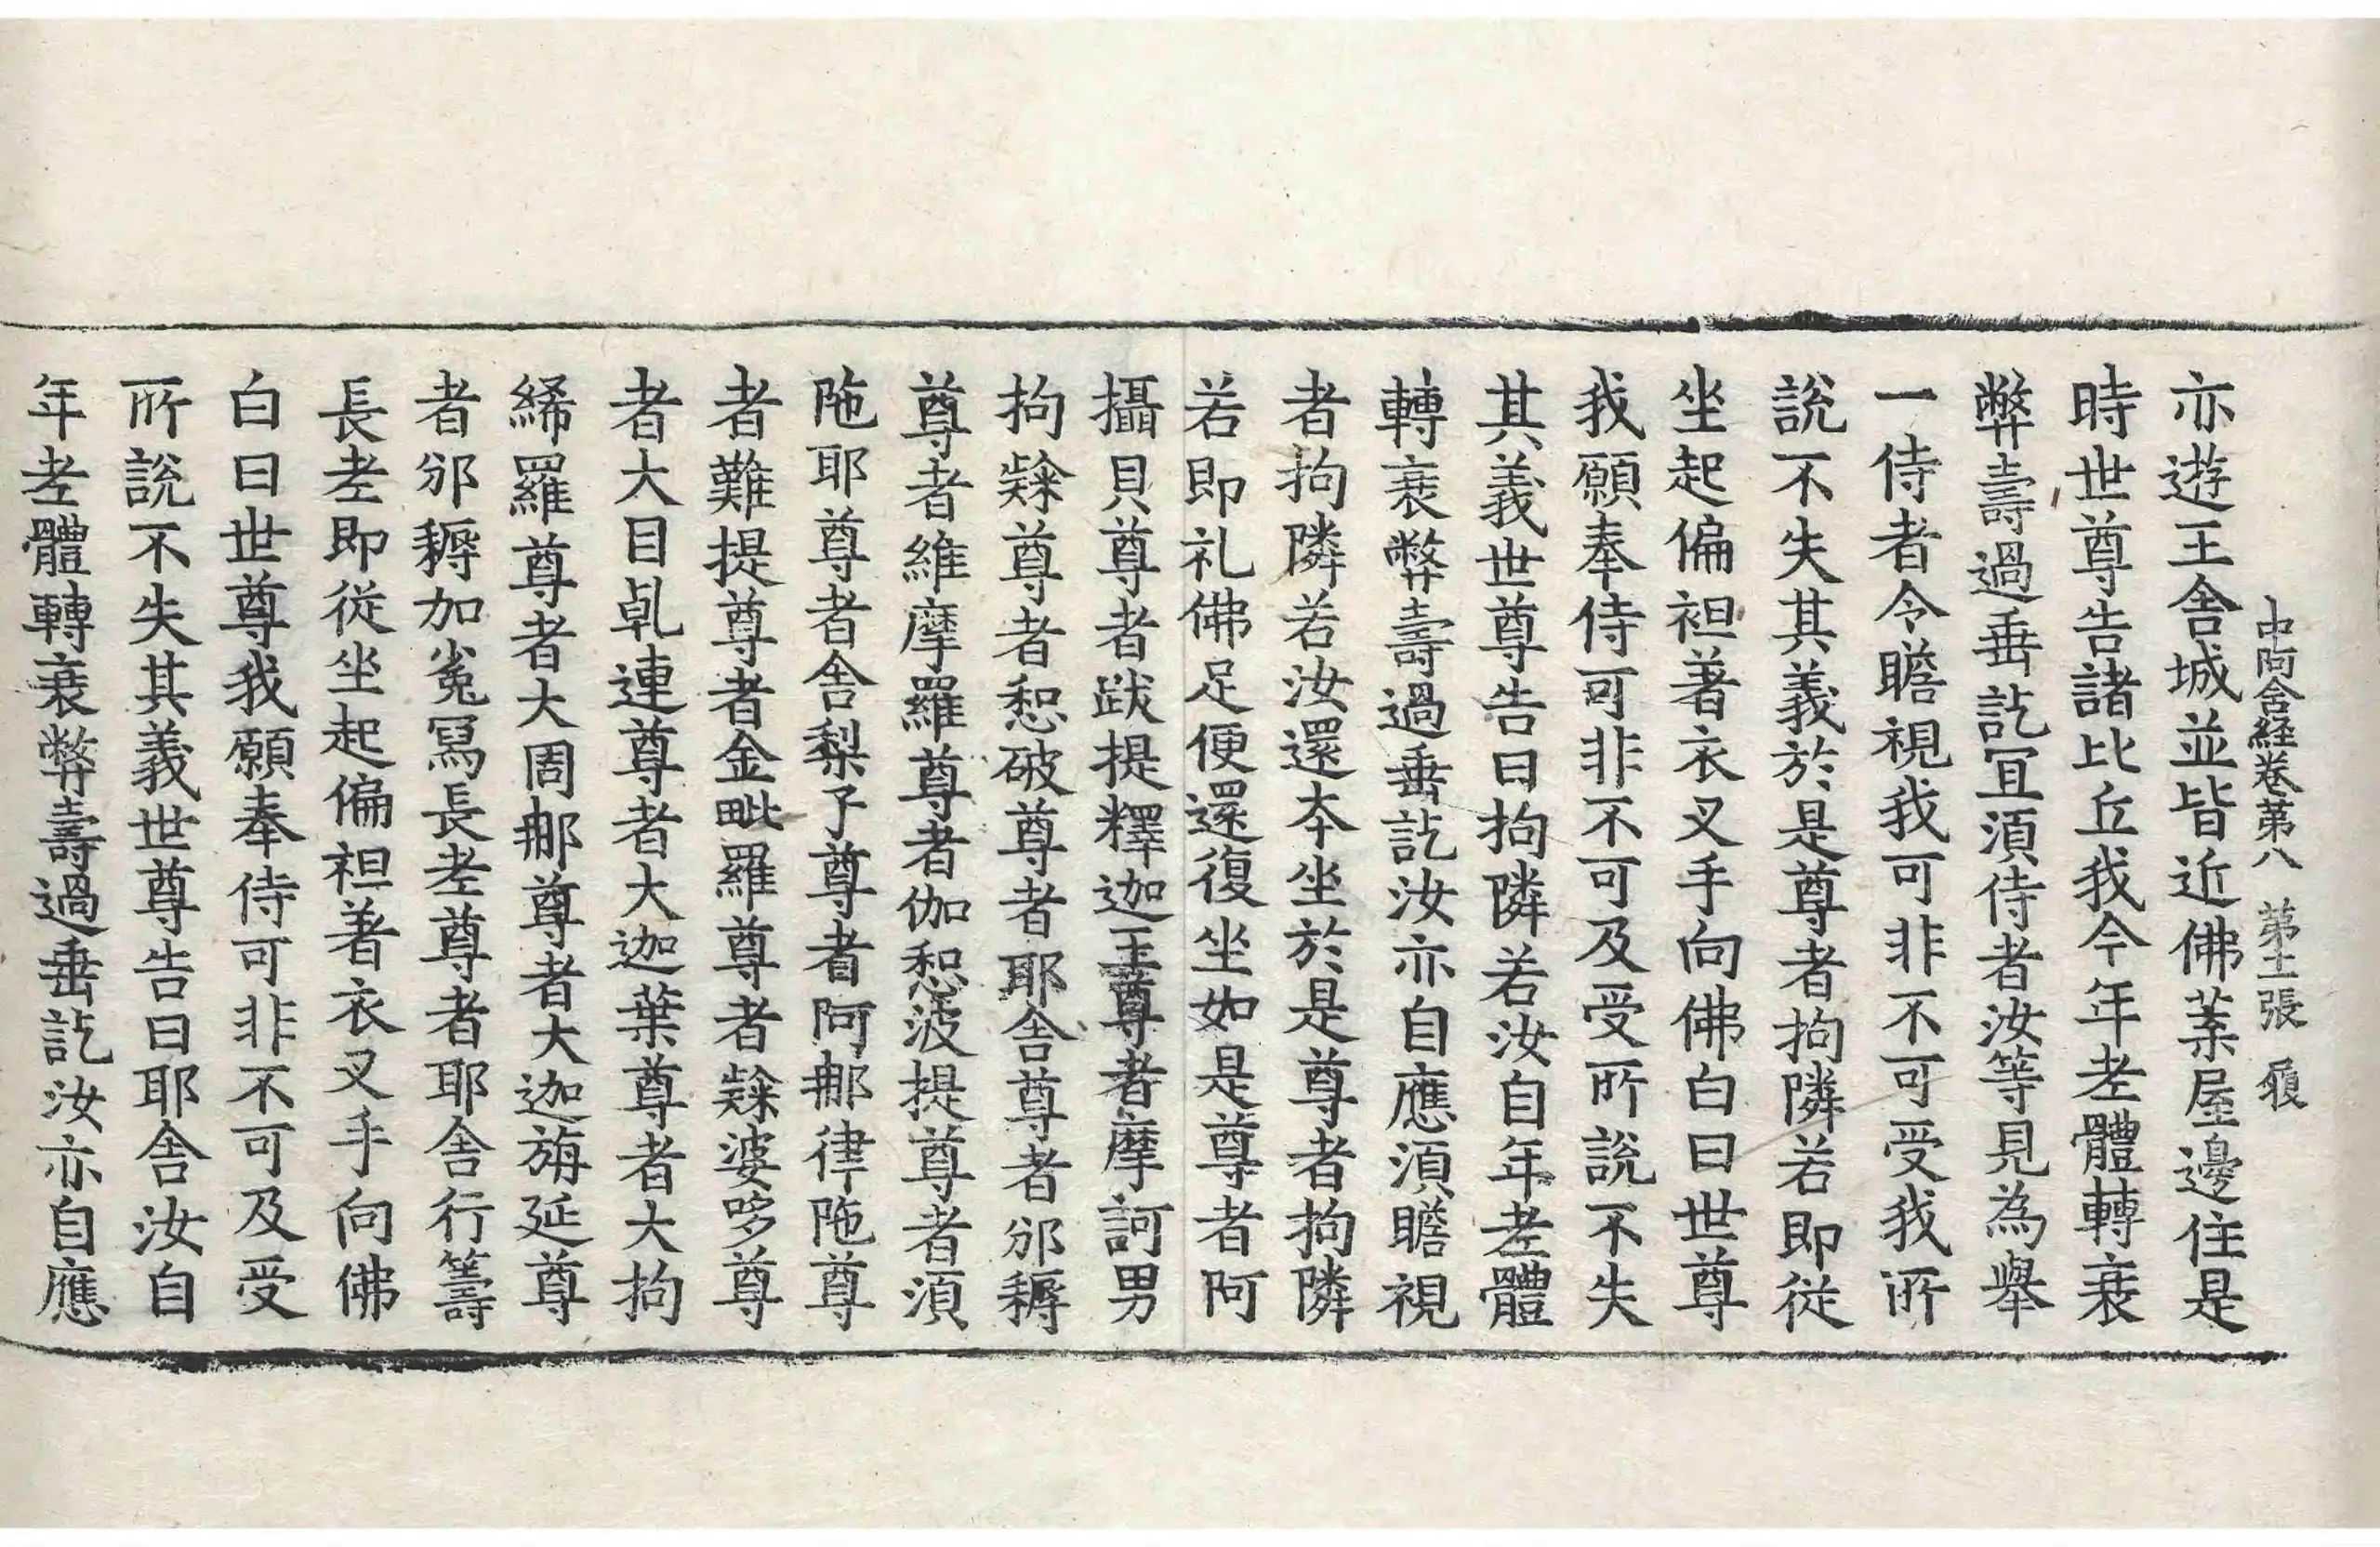 中阿含経卷第八 第十二張 履
亦遊王舍城並皆近佛葉屋邊住是
時世尊告諸比丘我今年老體轉衰
弊壽過垂訖宜須侍者汝等見為舉
一侍者令瞻視我可非不可受我所
說不失其義於是尊者拘隣若即從
坐起偏袒著衣叉手向佛白曰世尊
我願奉侍可非不可及受所說不失
其義世尊告曰拘隣若汝自年老體
轉衰弊壽過垂訖汝亦自應須瞻視
者拘隣若汝還本坐於是尊者拘隣
若即礼佛足便還復坐如是尊者阿
攝貝尊者跋提釋迦王尊者摩訶男
拘𣨼尊者惒破尊者耶舍尊者邠耨
尊者維摩羅尊者伽惒波提尊者須
陁耶尊者舍梨子尊者阿那律陁尊
者難提尊者金毗羅尊者𣨼婆哆尊
者大目乹連尊者大迦葉尊者大拘
絺羅尊者大周那尊者大迦旃延尊
者邠耨加㝹寫長老尊者耶舍行籌
長老即從坐起偏袒著衣叉手向佛
白曰世尊我願奉侍可非不可及受
所說不失其義世尊告曰耶舍汝自
年老體轉衰弊壽過垂訖汝亦自應